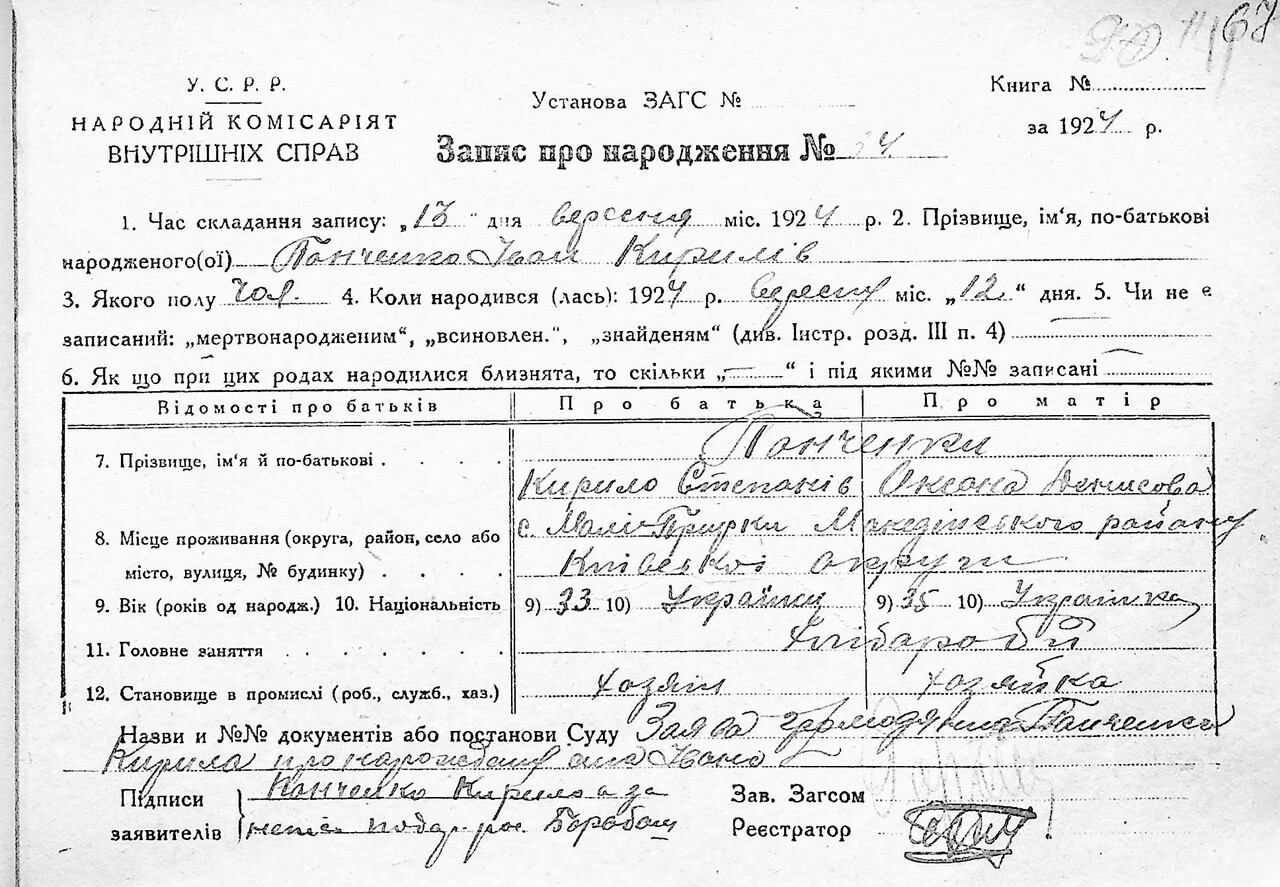 67
У. С. Р. Р.
НАРОДНІЙ КОМІСАРІЯТ
ВНУТРІШНІХ СПРАВ
Установа ЗАГС №
Книга №
за 1924 р.
Запис про народження № 24
1. Час складання запису: „13" дня вересня міс. 1924 р. 2. Прізвище, ім'я, по-батькові
народженого(ої) Панченко Іван Кирилів
3. Якого полу чол. 4. Коли народився (лась): 1924 р. вересня міс. „12" дня. 5. Чи не є
записаний: „мертвонародженим", „всиновлен.", „знайденям" (див. Інстр. розд. III п. 4)
6. Як що при цих родах народилися близнята, то скільки „—" і під якими №№ записані —
Відомості про батьків Про батька Про матір
7. Прізвище, ім'я й по-батькові Панченки
Кирило Степанів Оксана Денисова
8. Місце проживання (округа, район, село або с. Малі-Прицки Македінського району
місто, вулиця, № будинку) Київської округи
9. Вік (років од народж.) 10. Національність 9) 33 10) Українець 9) 35 10) Українка
11. Головне заняття Хлібороби
12. Становище в промислі (роб., служб., хаз.) хозяїн хозяйка
Назви и №№ документів або постанови Суду Заява громодянина Панченка
Кирила про народження сина Івана
Підписи Панченко Кирило а за
заявителів
Зав. Загсом
Реєстратор